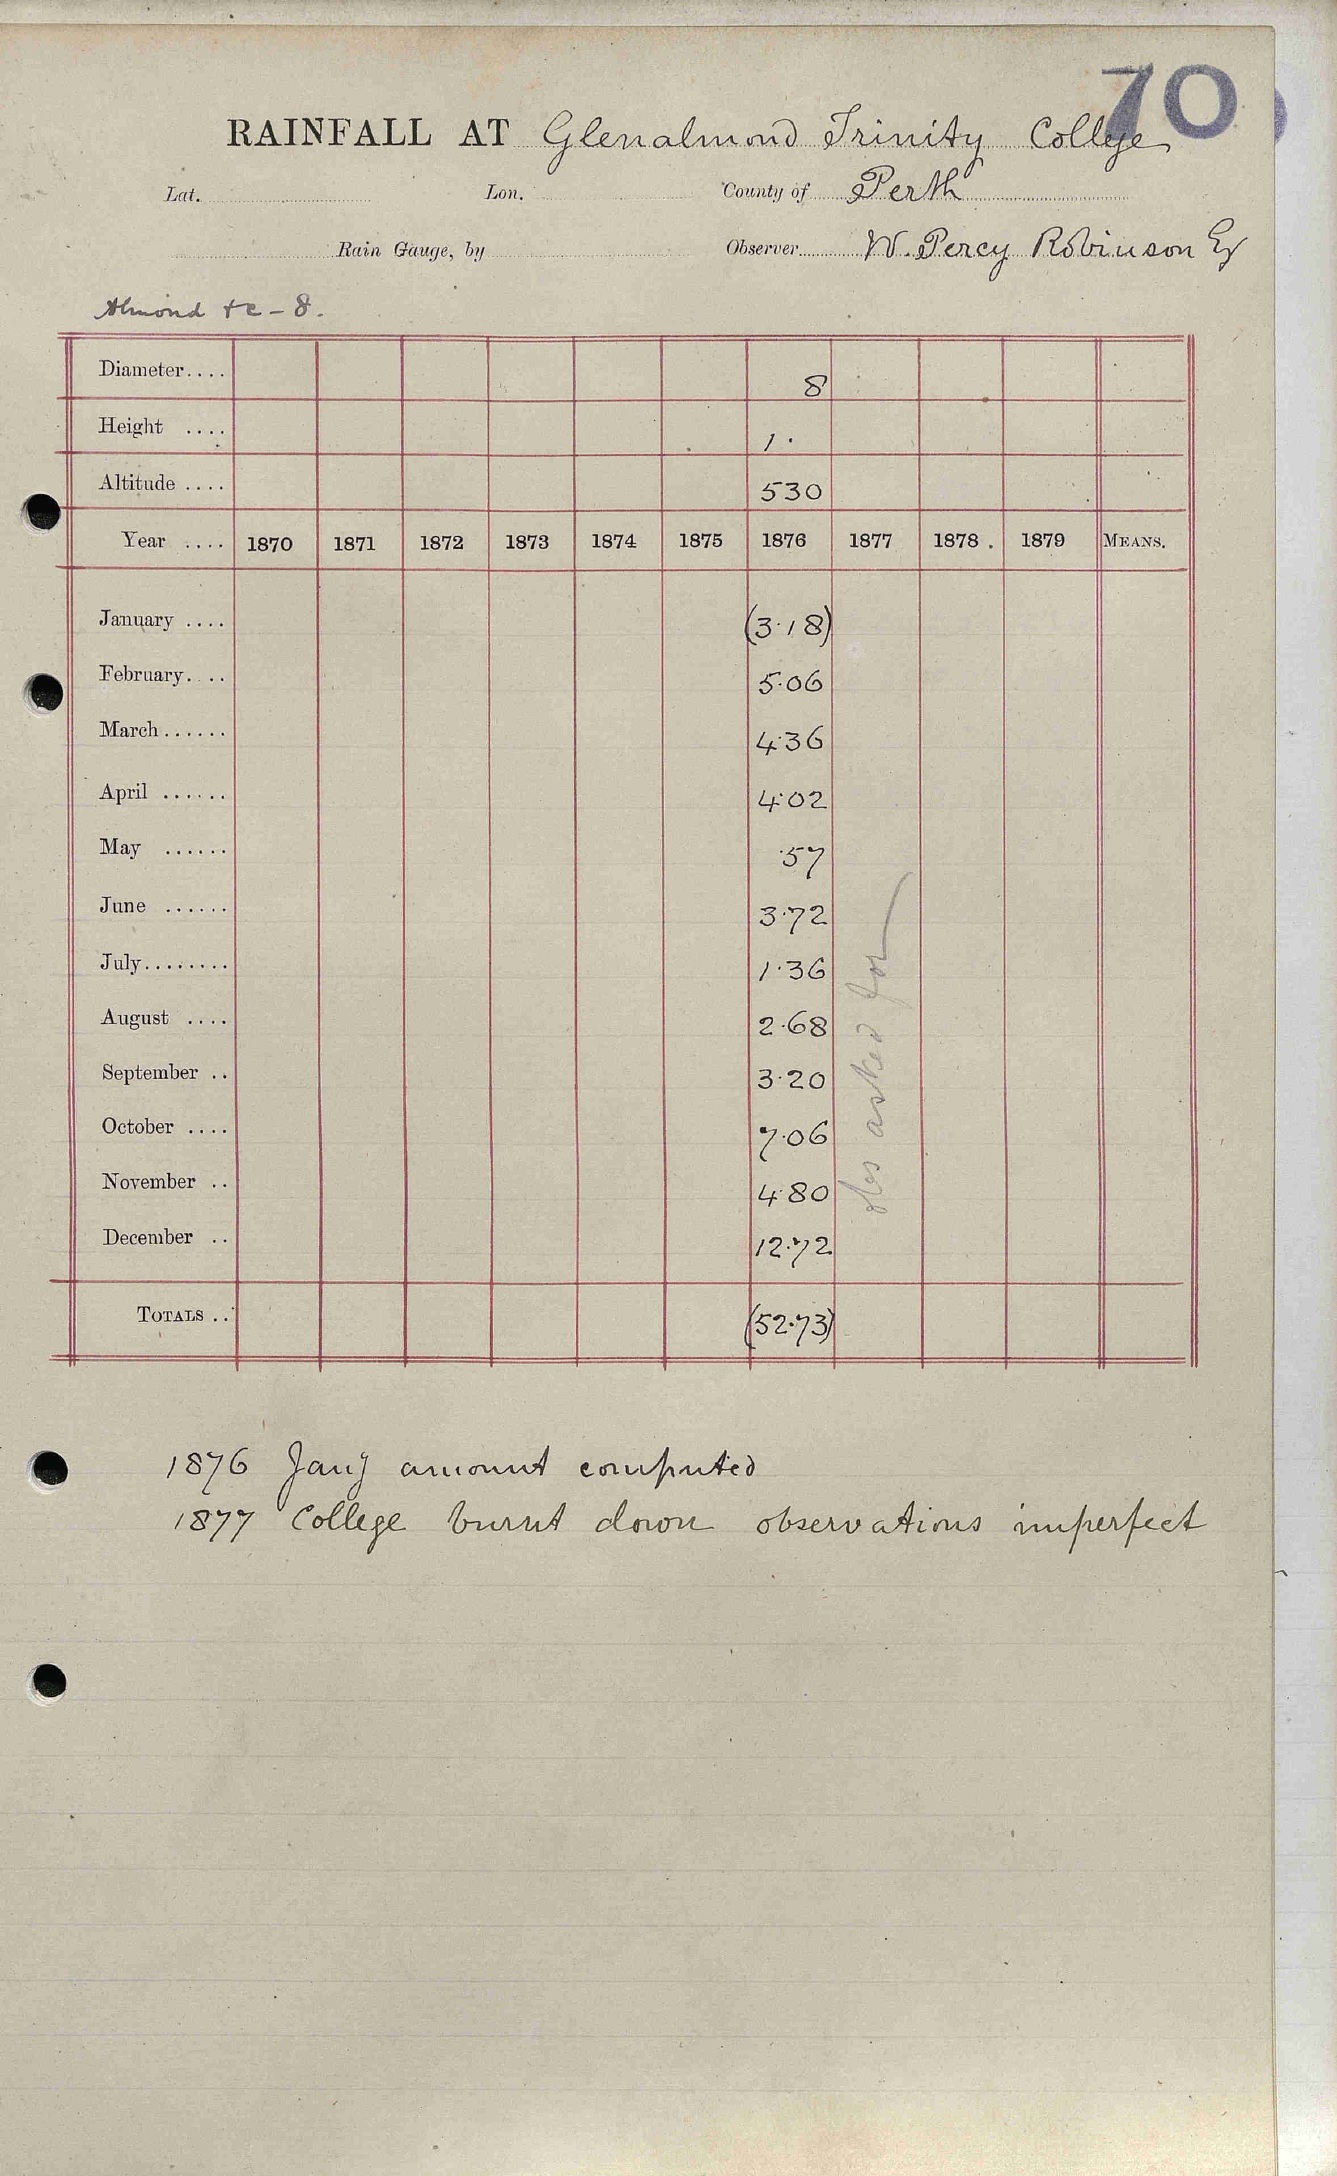 70
RAINFALL AT Glenalmond Trinity College
Lat. Lon. County of Perth
Rain Gauge, by Observer W. Percy Robinson Esq
Almond &c - 8.
Diameter.... 8
Height .... 1.
Altitude .... 530
Year .... 1870 1871 1872 1873 1874 1875 1876 1877 1878 1879 MEANS.
January .... (3.18)
February.... 5.06
March...... 4.36
April ...... 4.02
May ...... .57
June ...... 3.72
July........ 1.36
August .... 2.68
September .. 3.20
October .... 7.06
November .. 4.80
December .. 12.72
TOTALS .. (52.73)
obs asked for
1876 Jany amount computed
1877 College burnt down observations imperfect